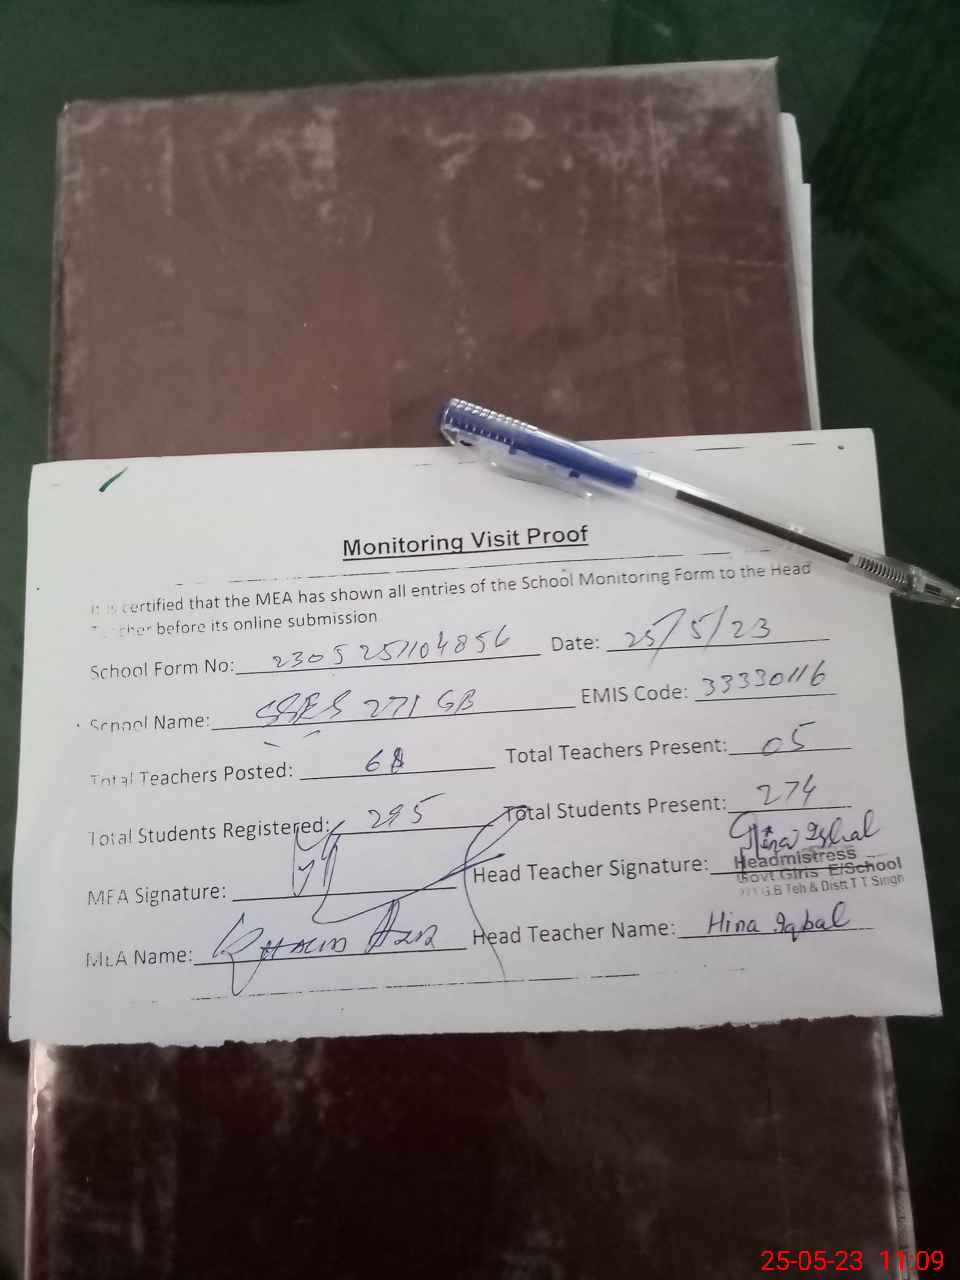 Monitoring Visit Proof
It is certified that the MEA has shown all entries of the School Monitoring Form to the Head
Teacher before its online submission
School Form No: Date: 25/5/23
School Name: 271 GB EMIS Code: 33330116
Total Teachers Posted: Total Teachers Present: 05
Total Students Registered: 295 Total Students Present: 274
MEA Signature: Head Teacher Signature: Hina Iqbal
Headmistress
Govt Girls E/School
271 G.B Teh & Distt.T.T.Singh
MEA Name: Head Teacher Name: Hina Iqbal
25-05-23 11:09